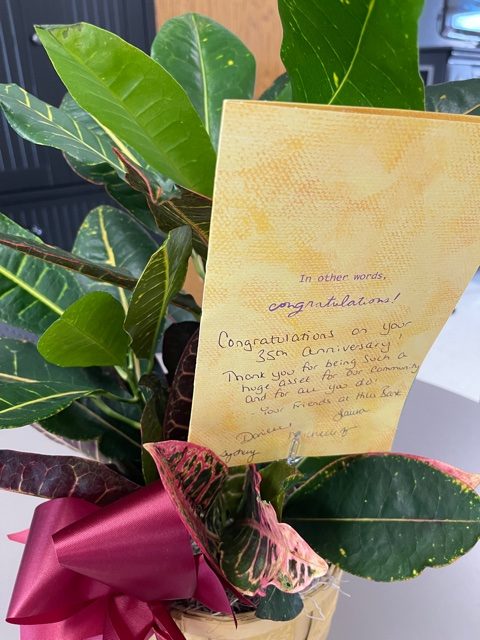 In other words,
congratulations!
Congratulations on your
35th anniversary!
Thank you for being such a
huge asset for our community
and for all you do!
Your friends at this Bank
Laura
Sydney